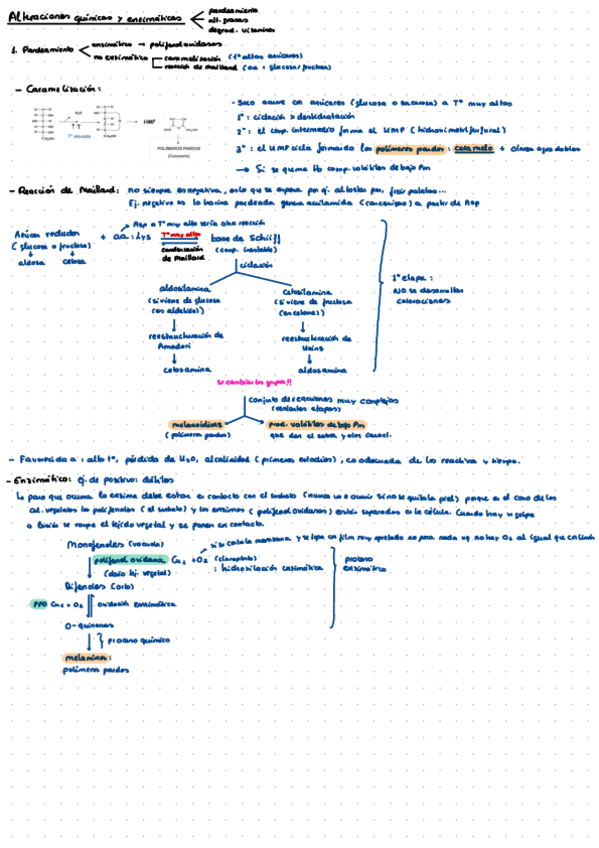 Alteraciones químicas y enzimáticas
pardeamiento
alt. grasas
degrad. vitaminas
1. Pardeamiento
enzimático → polifenoloxidasas
no enzimático
caramelización (Tª altas azúcares)
reacción de maillard (aa + glucosa/fructosa)
- Caramelización:
HMF
POLIMEROS PARDOS
(Caramelo)
- Solo ocurre en azúcares (glucosa o sacarosa) a Tª muy altas
1º: ciclación y deshidratación
2º: el comp. intermedio forma el HMF (hidroximetilfurfural)
3º: el HMF cicla formando los polímeros pardos: caramelo + olores agradables
→ Si se quema lib comp. volátiles de bajo Pm
- Reacción de Maillard: no siempre es negativa, es lo que se espera por ej. al tostar pan, freir patatas...
Ej. negativo es la harina pardeada genera acrilamida (cancerígeno) a partir de Asp
Asp a Tª muy alta sería otra reacción
Azúcar reductor + aa: Lys
(glucosa o fructosa)
aldosa cetosa
Tª muy altas
condensación
de Maillard
base de Schiff
(comp. inestable)
ciclación
aldosilamina
(si viene de glucosa
(es aldehído)
cetosilamina
(si viene de fructosa
(es cetona)
1ª etapa:
NO se desarrollan
coloraciones
reestructuración de
Amadori
reestructuración de
Heins
cetosamina
aldosamina
se cambian los grupos!!
conjunto de reacciones muy complejas
(restantes etapas)
melanoidinas
(polímeros pardos)
prod. volátiles de bajo Pm
que dan el sabor y olor caract.
- Favorecida a: alta tª, pérdida de H2O, alcalinidad (primeros estadios), co adecuada de los reactivos y tiempo.
- Enzimático: ej. de positivo: dátiles
La para que ocurra la enzima debe estar en contacto con el sustrato (nunca va a ocurrir si no se quita la piel) porque en el caso de los
cel. vegetales los polifenoles (el sustrato) y las enzimas (polifenoloxidasas) están separados en la célula. Cuando hay un golpe
o lesión se rompe el tejido vegetal y se ponen en contacto.
Monofenoles (vacuola)
polifenol oxidasa Cu2 + O2 (cloroplasto)
(daño tej. vegetal)
: hidroxilación enzimática
proceso
enzimático
Difenoles (orto)
PPO Cu2 + O2
oxidación enzimática
O-quinonas
} proceso químico
melaninas:
polímeros pardos